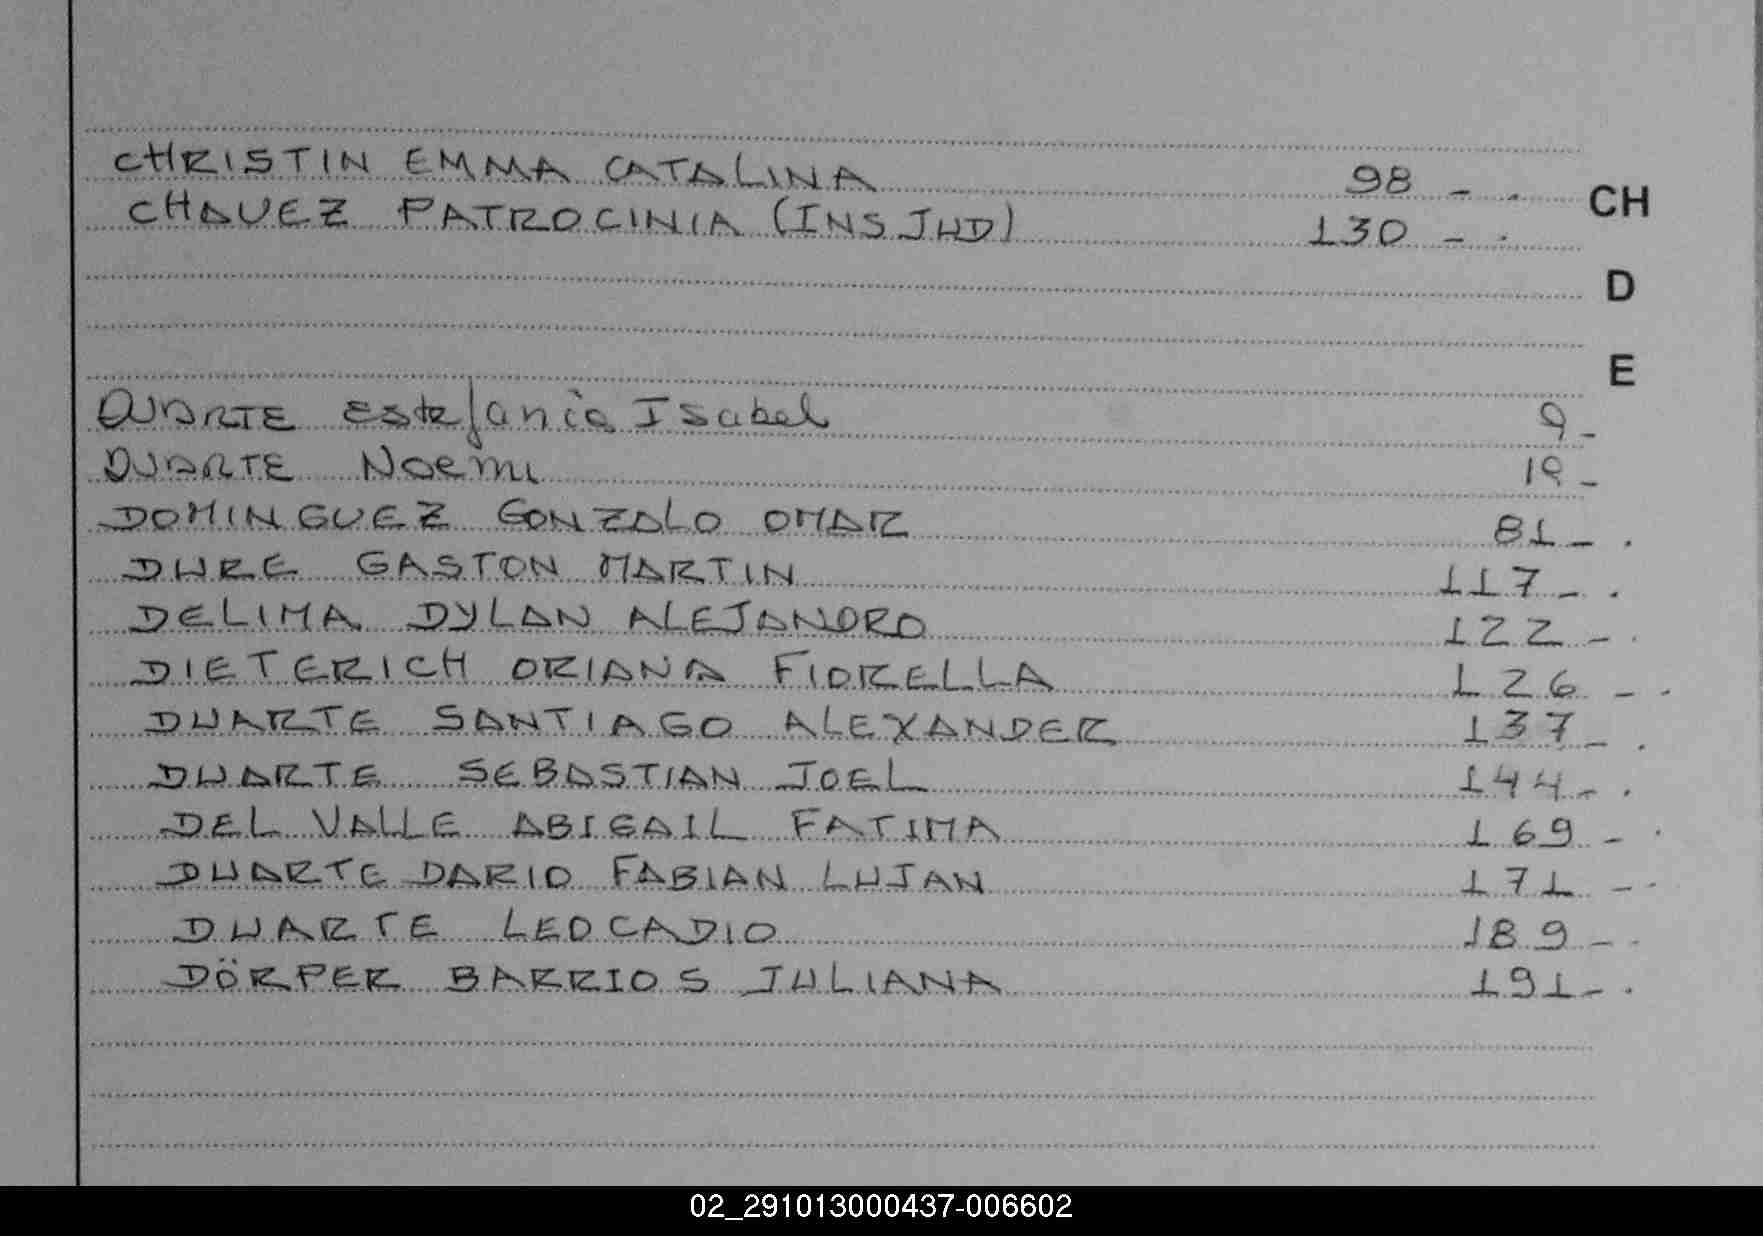 CHRISTIN EMMA CATALINA 98 - .
CHAVEZ PATROCINIA (INS JUD) 130 - .
CH
D
E
DUARTE Estefania Isabel 9 -
DUARTE Noemi 19 -
DOMINGUEZ GONZALO OMAR 81 - .
DURE GASTON MARTIN 117 - .
DELIMA DYLAN ALEJANDRO 122 - .
DIETERICH ORIANA FIORELLA 126 - .
DUARTE SANTIAGO ALEXANDER 137 - .
DUARTE SEBASTIAN JOEL 144 - .
DEL VALLE ABIGAIL FATIMA 169 - .
DUARTE DARIO FABIAN LUJAN 171 - .
DUARTE LEOCADIO 189 - .
DÖRPER BARRIOS JULIANA 191 - .
02_291013000437-006602